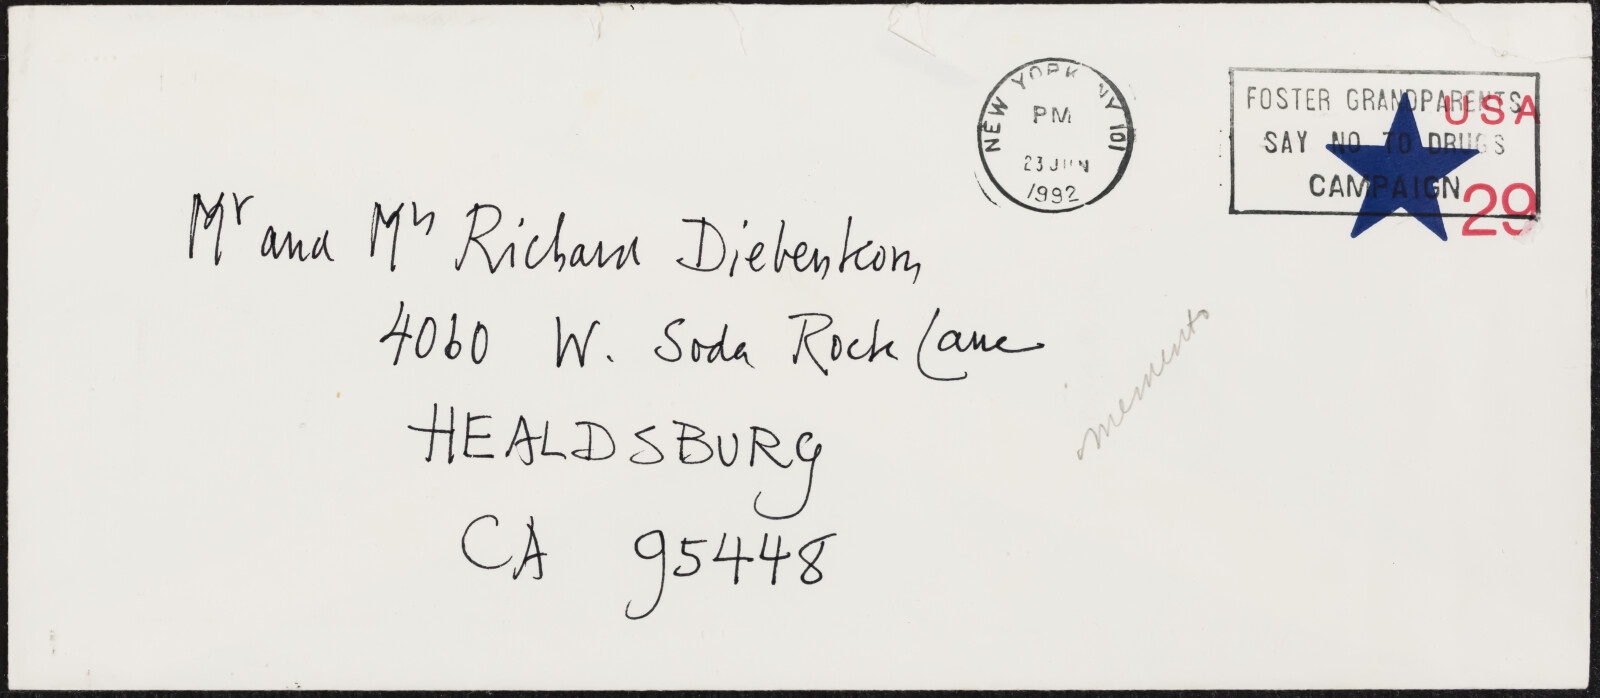 NEW YORK NY 101
PM
23 JUN
1992
FOSTER GRANDPARENTS
SAY NO TO DRUGS
CAMPAIGN
USA
29
Mr and Mrs Richard Diebenkorn
4060 W. Soda Rock Lane
HEALDSBURG
CA 95448
memento